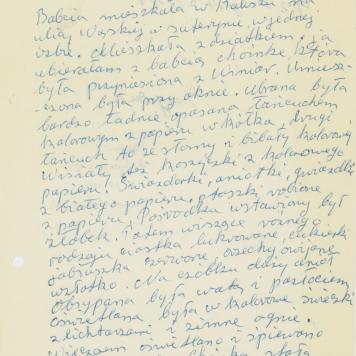 Babcia mieszkała w Kaliszu na
ulicy Wąskiej w suterynie, w jednej
izbie. Mieszkała z dziatkiem. Ja
ubierałam z babcią choinkę, która
była przyniesiona z Winiar. Umiesz-
czona była przy oknie. Ubrana była
bardzo ładnie, opasana łańcuchem
kolorowym z papieru w kółka, drugi
łańcuch to ze słomy i bibuły kolorowej
Wisiały też koszyczki z kolorowego
papieru. Gwiazdorki, aniołki, gwiazdki
z białego papieru. Ptaszki robione
z papieru. Pośrodku wstawiony był
żłobek. Potem wiszące różnego
rodzaju ciastka lukrowane, cukierki
jabłuszka czerwone, orzechy owijane
w złotko. Na czubku duży anioł
Obsypana była watą i puszkiem
oświetlana była w kolorowe świeczki
z lichtarzami i zimne ognie.
Wieczorem świetlano i śpiewano
stała